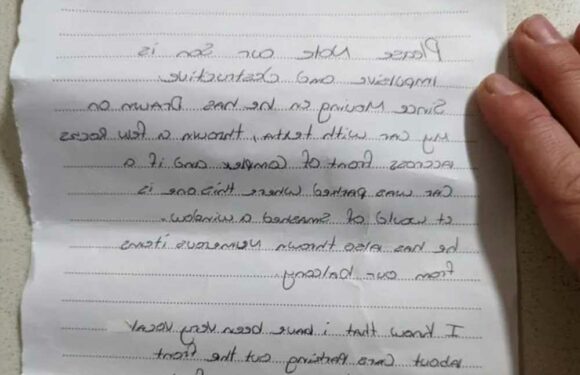 Please Note our Son is
Impulsive and Destructive.
Since Moving in he has Drawn on
My car with texta, thrown a few Rocks
accross front of Complex and if a
Car was parked where this one is
it would of smashed a window.
he has also thrown Numerous items
from our balcony.
I know that i have been very vocal
about Cars Parking out the front